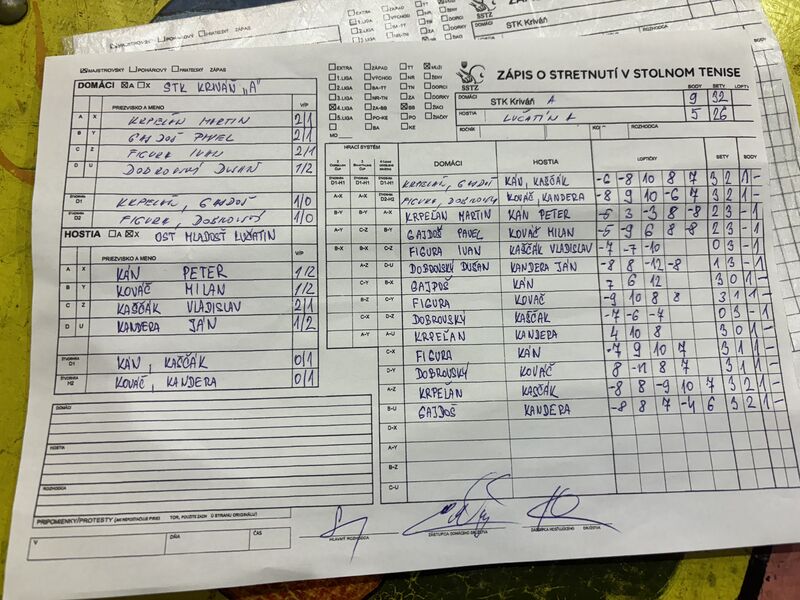 STK Kriváň
☒ MAJSTROVSKÝ ☐ POHÁROVÝ ☐ PRIATEĽSKÝ ZÁPAS
ZÁPIS O STRETNUTÍ V STOLNOM TENISE
SSTZ
☐ EXTRA ☐ ZÁPAD ☐ TT ☒ MUŽI
☐ 1. LIGA ☐ VÝCHOD ☐ NR ☐ ŽENY
☐ 2. LIGA ☐ BA-TT ☐ TN ☐ DORCI
☐ 3. LIGA ☐ NR-TN ☐ ZA ☐ DORKY
☒ 4. LIGA ☐ ZA-BB ☒ BB ☐ ŽIACI
☐ 5. LIGA ☐ PO-KE ☐ PO ☐ ŽIAČKY
☐ BA ☐ KE
MO
BODY SETY LOPT
DOMÁCI STK Kriváň A 9 32
HOSTIA LUČATÍN A 5 26
ROČNÍK ROZHODCA
DOMÁCI ☒ A ☐ X STK KRIVÁŇ "A"
PRIEZVISKO A MENO V/P
A X KRPEĽAN MARTIN 2/1
B Y GAJDOŠ PAVEL 2/1
C Z FIGURA IVAN 2/1
D U DOBROVSKÝ DUŠAN 1/2
ŠTVORHRA D1 KRPEĽAN, GAJDOŠ 1/0
ŠTVORHRA D2 FIGURA, DOBROVSKÝ 1/0
HOSTIA ☐ A ☒ X OŠT MLADOSŤ LUČATÍN
PRIEZVISKO A MENO V/P
A X KÁN PETER 1/2
B Y KOVÁČ MILAN 1/2
C Z KAŠČÁK VLADISLAV 2/1
D U KANDERA JÁN 1/2
ŠTVORHRA D1 KÁN, KAŠČÁK 0/1
ŠTVORHRA H2 KOVÁČ, KANDERA 0/1
HRACÍ SYSTÉM DOMÁCI HOSTIA LOPTIČKY SETY BODY
ŠTVORHRA D1-H1 ŠTVORHRA D1-H1 ŠTVORHRA D1-H1 KRPEĽAN, GAJDOŠ KÁN, KAŠČÁK -6 -8 10 8 7 3 2 1 -
A-X A-X ŠTVORHRA D2-H2 FIGURA, DOBROVSKÝ KOVÁČ, KANDERA -8 9 10 -6 7 3 2 1 -
B-Y B-Y A-X KRPEĽAN MARTIN KÁN PETER -5 3 -3 8 -8 2 3 - 1
A-Y C-Z B-Y GAJDOŠ PAVEL KOVÁČ MILAN -5 -9 6 8 -8 2 3 - 1
B-X B-X C-Z FIGURA IVAN KAŠČÁK VLADISLAV -7 -7 -10 0 3 - 1
A-Z D-U DOBROVSKÝ DUŠAN KANDERA JÁN -8 8 -12 -8 1 3 - 1
C-Y B-X GAJDOŠ KÁN 7 6 12 3 0 1 -
B-Z C-Y FIGURA KOVÁČ -9 10 8 8 3 1 1 -
C-X D-Z DOBROVSKÝ KAŠČÁK -7 -6 -7 0 3 - 1
A-Y A-U KRPEĽAN KANDERA 4 10 8 3 0 1 -
C-X FIGURA KÁN -7 9 10 7 3 1 1 -
D-Y DOBROVSKÝ KOVÁČ 8 -11 8 7 3 1 1 -
A-Z KRPEĽAN KAŠČÁK -8 8 -9 10 7 3 2 1 -
B-U GAJDOŠ KANDERA -8 8 7 -4 6 3 2 1 -
D-X
A-Y
B-Z
C-U
DOMÁCI
HOSTIA
ROZHODCA
PRIPOMIENKY/PROTESTY
V DŇA ČAS
HLAVNÝ ROZHODCA ZÁSTUPCA DOMÁCEHO DRUŽSTVA ZÁSTUPCA HOSŤUJÚCEHO DRUŽSTVA